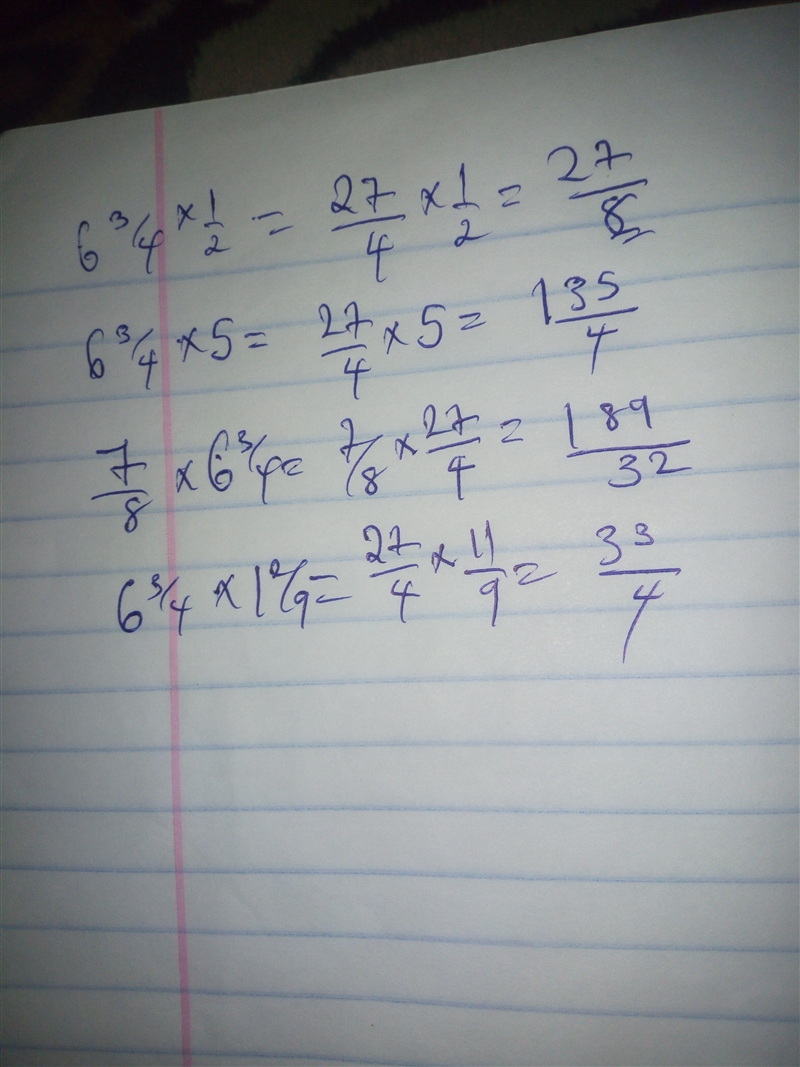 6 3/4 × 1/2 = 27/4 × 1/2 = 27/8
6 3/4 × 5 = 27/4 × 5 = 135/4
7/8 × 6 3/4 = 7/8 × 27/4 = 189/32
6 3/4 × 1 2/9 = 27/4 × 11/9 = 33/4